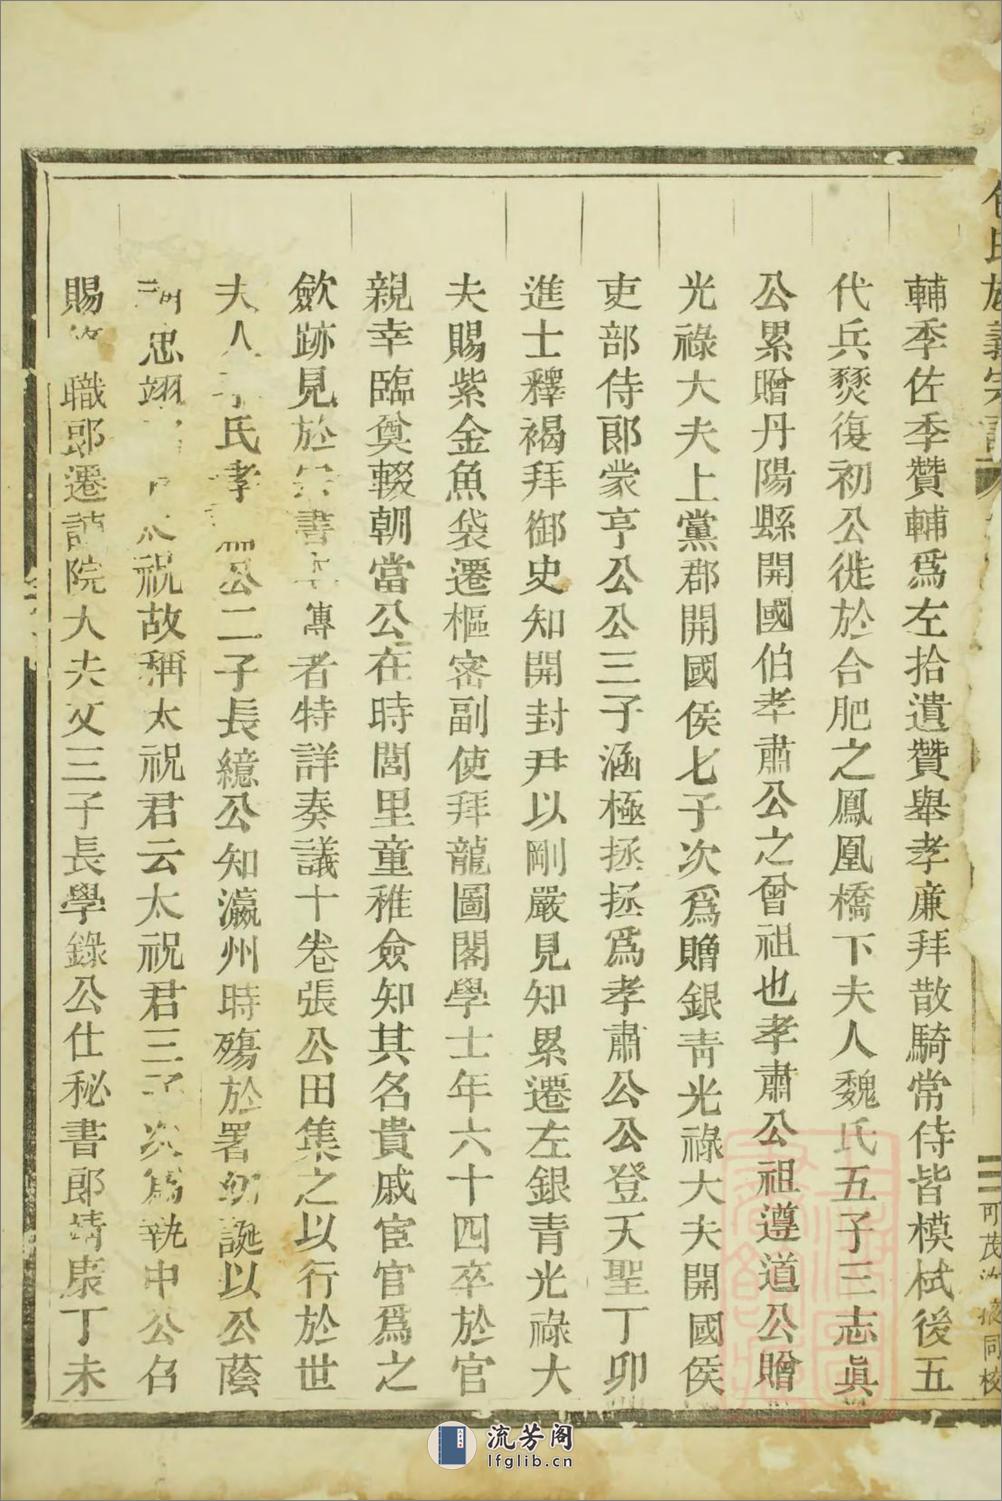 輔季佐季贊輔爲左拾遺贊舉孝廉拜散騎常侍皆模栻後五
代兵燹復初公徙於合肥之鳳凰橋下夫人魏氏五子三志眞
公累贈丹陽縣開國伯孝肅公之曾祖也孝肅公祖遵道公贈
光祿大夫上黨郡開國侯七子次爲贈銀靑光祿大夫開國侯
吏部侍郎蒙亨公公三子涵極拯拯爲孝肅公公登天聖丁卯
進士釋褐拜御史知開封尹以剛嚴見知累遷左銀青光祿大
夫賜紫金魚袋遷樞密副使拜龍圖閣學士年六十四卒於官
親幸臨奠輟朝當公在時閭里童稚僉知其名貴戚宦官爲之
歛跡見於宋書本傳者特詳奏議十卷張公田集之以行於世
夫人李氏孝肅公二子長繶公知瀛州時殤於署幼誕以公蔭
忠翊公祝故稱太祝君云太祝君三子次爲執中公召
賜職郎遷諫院大夫攵三子長學錄公仕秘書郎靖康丁未
包氏族義宗譜
可茂
同校
流芳阁
lfglib.cn